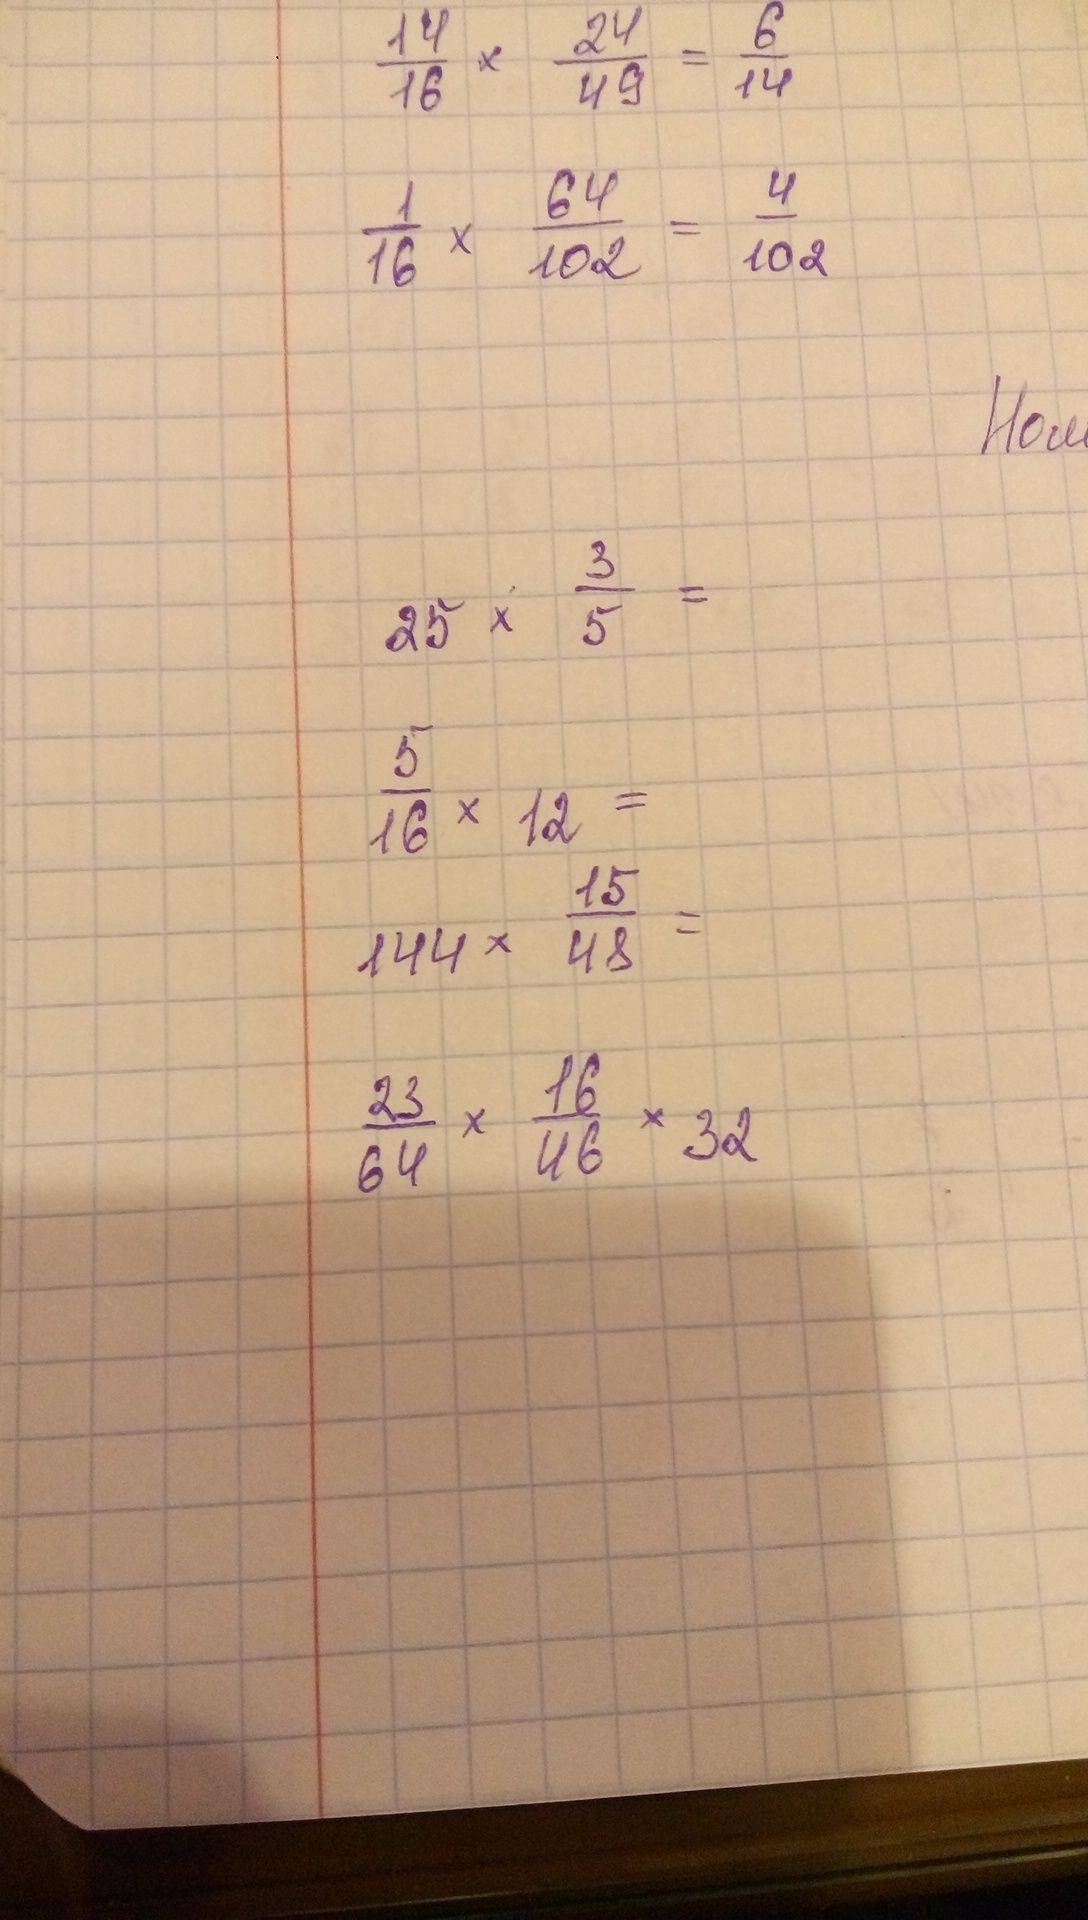 14/16 × 24/49 = 6/14
1/16 × 64/102 = 4/102
25 × 3/5 =
5/16 × 12 =
144 × 15/48 =
23/64 × 16/46 × 32